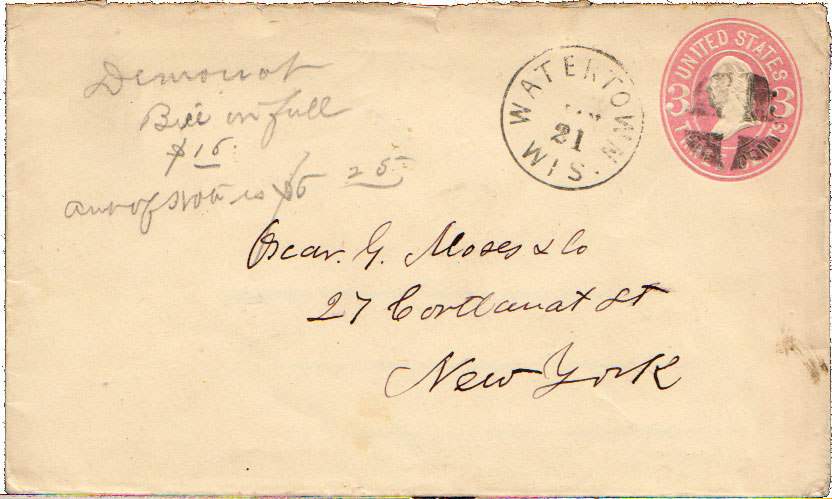 UNITED STATES
3 3
THREE CENTS
WATERTOWN
21
WIS.
Democrat
Bill in full
$15
amt of note is $6 25
Oscar. G. Moses & Co
27 Cortlandt St
New York